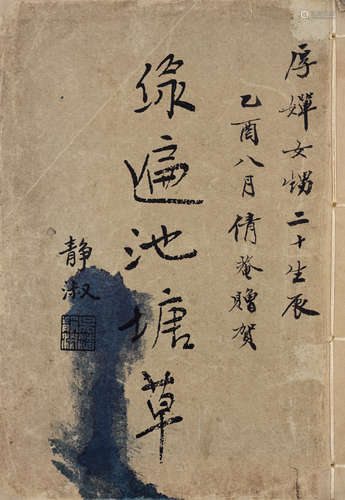 厚嬋女甥二十生辰
乙酉八月倩菴贈賀
緑遍池塘草
静淑